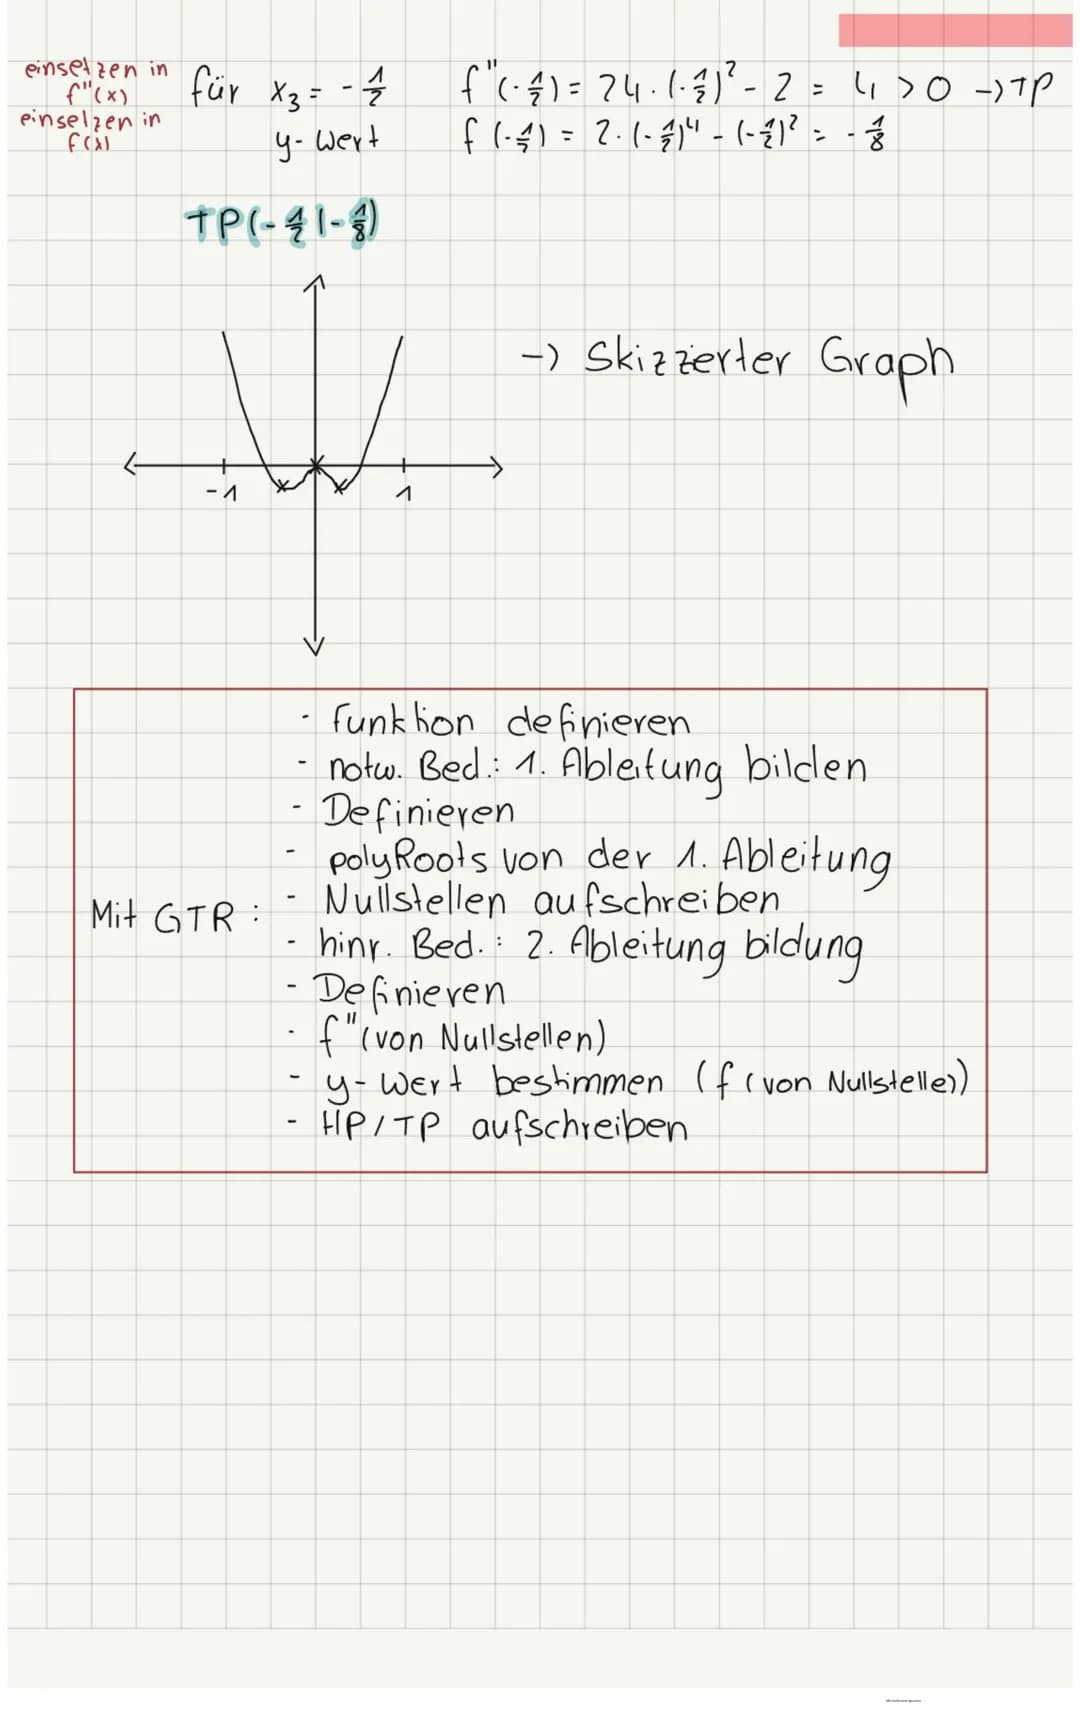 einsetzen in
f"(x)
einsetzen in
f(x)
für x₃ = - 1/2 f"(-1/2) = 24 · (-1/2)² - 2 = 4 > 0 -> TP
y-Wert f (-1/2) = 2 · (-1/2)⁴ - (-1/2)² = - 1/8
TP(- 1/2 | - 1/8)
-> Skizzerter Graph
-1 1
- Funktion definieren
- notw. Bed.: 1. Ableitung bilden
- Definieren
- polyRoots von der 1. Ableitung
Mit GTR :
- Nullstellen aufschreiben
- hinr. Bed. : 2. Ableitung bildung
- Definieren
- f" (von Nullstellen)
- y-Wert bestimmen (f (von Nullstelle))
- HP/TP aufschreiben